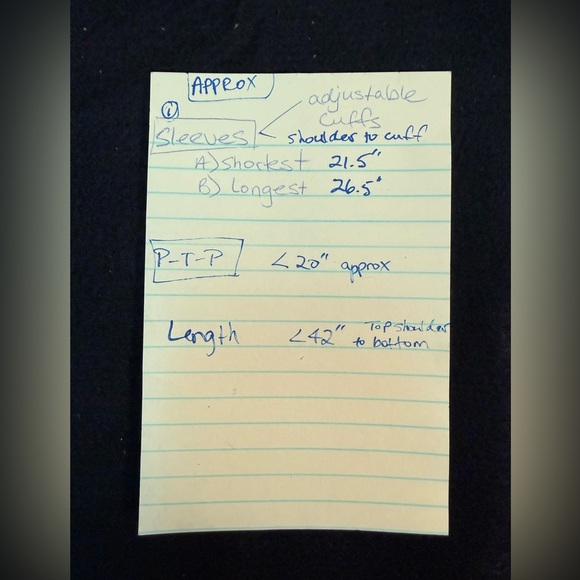 APPROX
adjustable
cuffs
① Sleeves < shoulder to cuff
A) Shortest 21.5"
B) Longest 26.5"
P-T-P <20" approx
Length <42" Top shoulder
to bottom